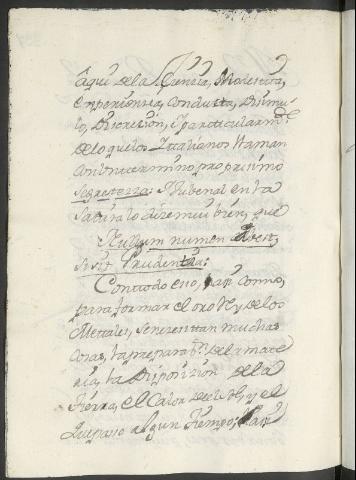 aqui de la Ciencia, Modestia,
experiencia, conducta, Disimu-
lo, Discrecion, y particularm.te
de lo que los Italianos llaman
con un termino propriissimo
segretezza: Jubenal en la
Satira lo dize mui bien, que
Nullum numen abest,
si sit Prudentia:
Con todo eso, asi como,
para formar el oro Rey de los
Metales, se necesitan muchas
cosas, la preparaon. de la mate
ria, la Disposizion de la
tierra, el Calor del Sol, y el
espasio algun tiempo;